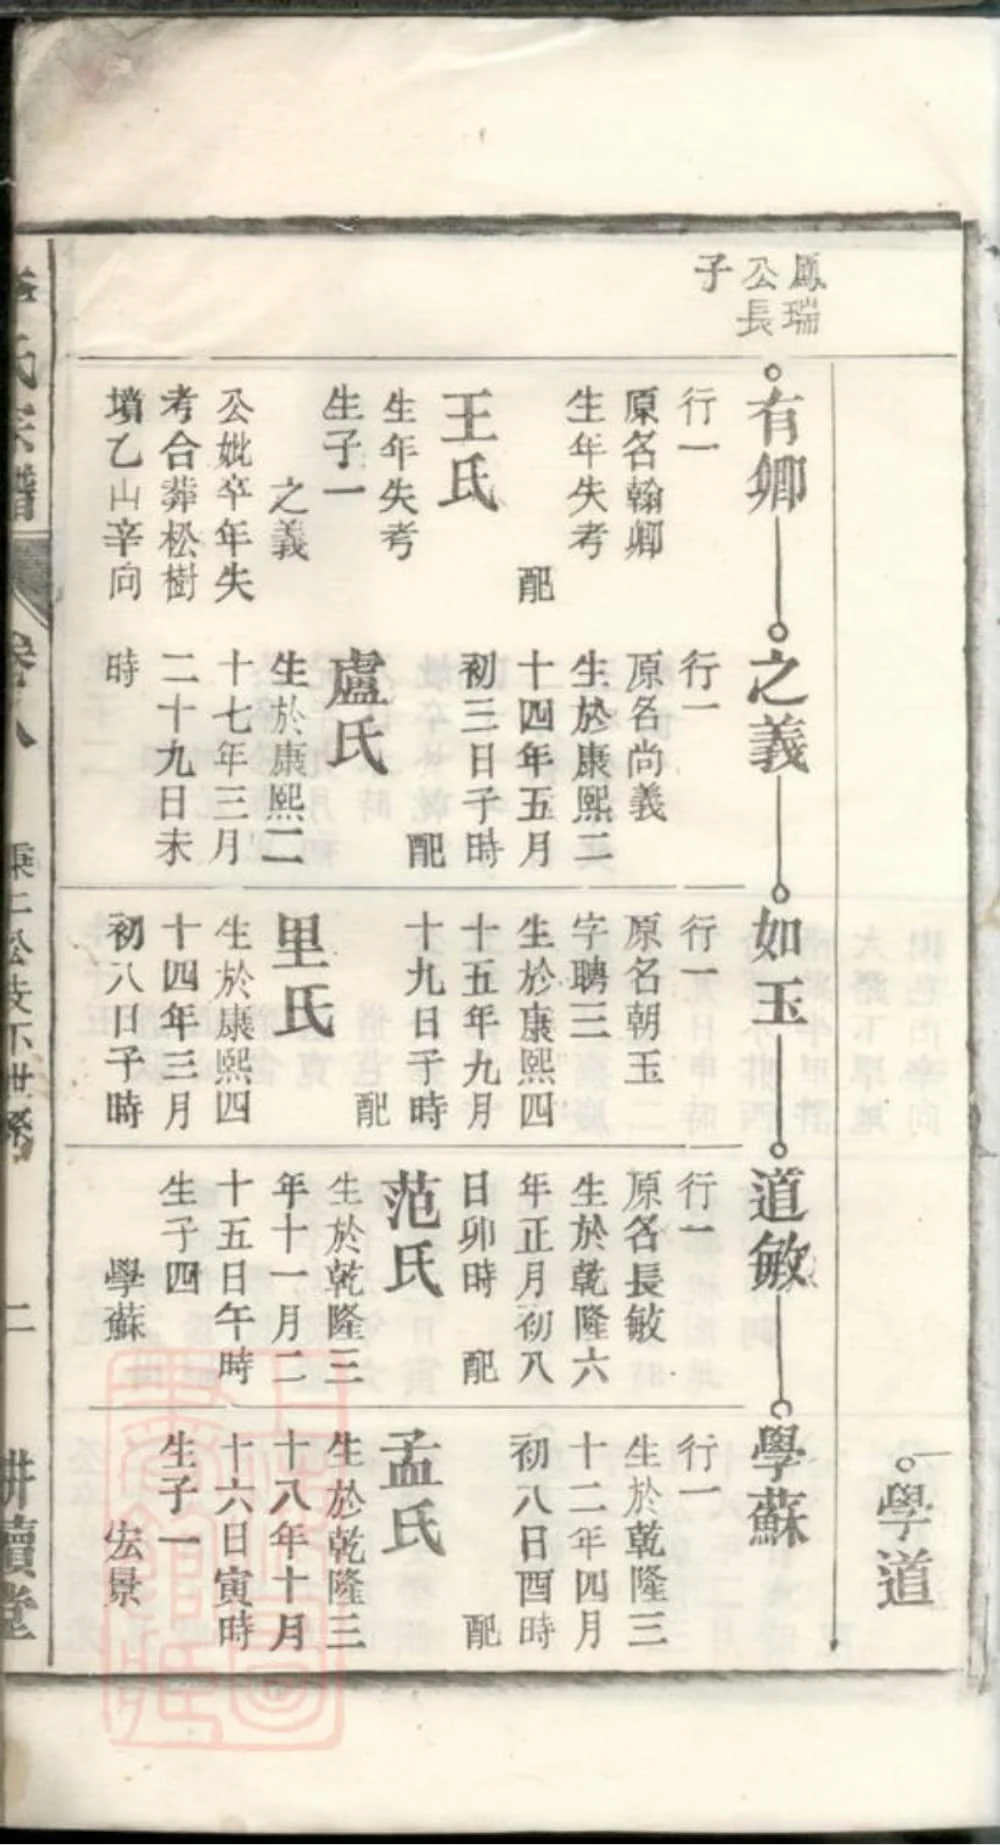 學道
鳳瑞
公長
子
有卿
行一
原名翰卿
生年失考
配
王氏
生年失考
生子一
之義
公妣卒年失
考合葬松樹
墳乙山辛向
之義
行一
原名尚義
生於康熙二
十四年五月
初三日子時
配
盧氏
生於康熙二
十七年三月
二十九日未
時
如玉
行一
原名朝玉
字聘三
生於康熙四
十五年九月
十九日子時
配
里氏
生於康熙四
十四年三月
初八日子時
道敏
行一
原名長敏
生於乾隆六
年正月初八
日卯時
配
范氏
生於乾隆三
年十一月二
十五日午時
生子四
學蘇
學蘇
行一
生於乾隆三
十二年四月
初八日酉時
配
孟氏
生於乾隆三
十八年十月
十六日寅時
生子一
宏景
氏宗譜
卷八
二
耕讀堂